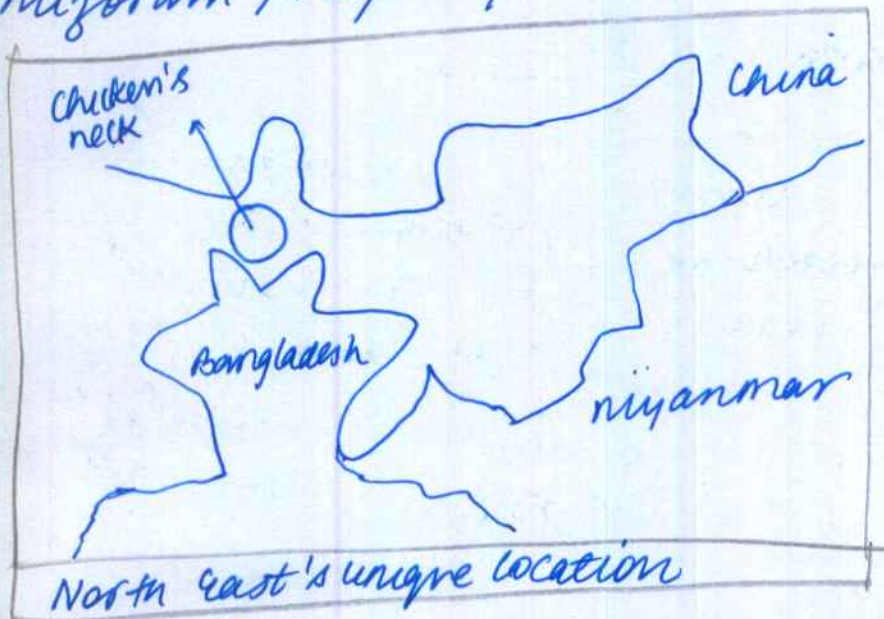 Chicken's
neck
China
Bangladesh
Myanmar
North East's unique location